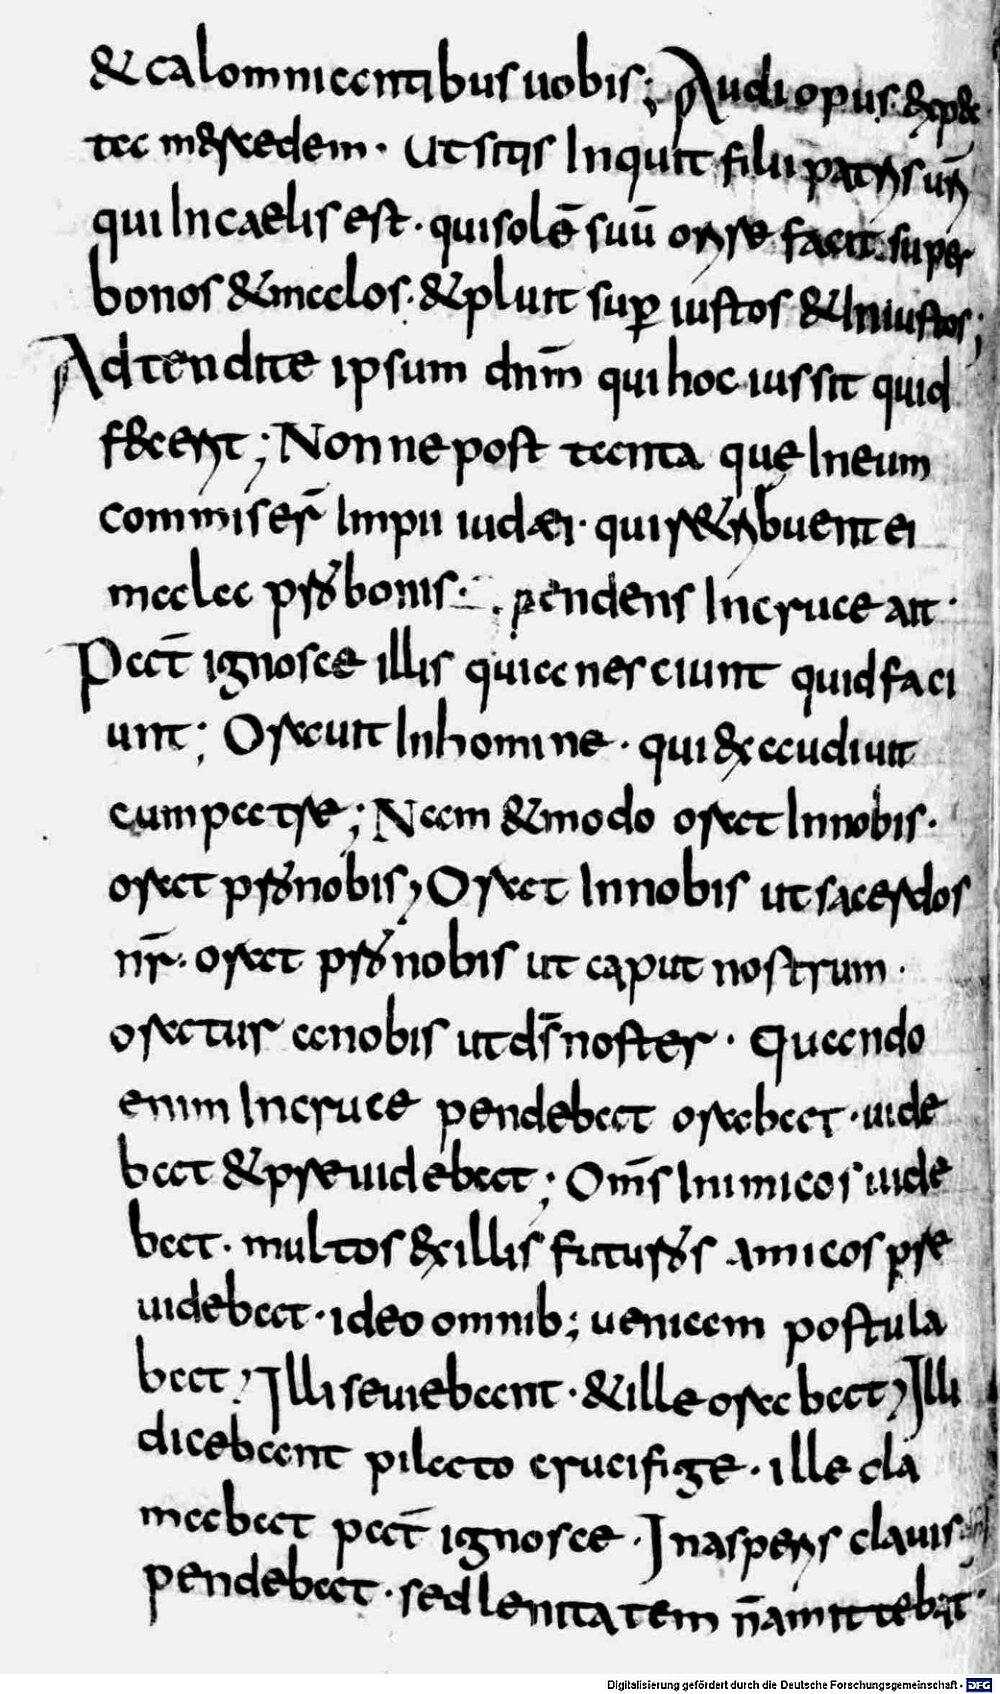 & calomniantibus uobis; Audi opus. & expec
ta mercedem. Ut sitis Inquit filii patris uri
qui In caelis est. qui solē suū oriri facit super
bonos & malos. & pluit sup iustos & Iniustos;
Adtendite ipsum dnm̄ qui hoc iussit quid
fecerit; Nonne post tanta que In eum
commiser̄ Impii iudæi. qui retribuent ei
mala pro bonis. pendens In cruce ait.
Pat̄ ignosce illis quia nesciunt quid faci
unt; Orauit In homine. qui exaudiuit
cum patre; Nam & modo orat In nobis.
orat pro nobis, Orat In nobis ut sacerdos
nr̄. orat pro nobis ut caput nostrum.
oratur a nobis ut ds̄ noster. Quando
enim In cruce pendebat orabat. uide
bat & preuidebat; Oms̄ Inimicos uide
bat. multos ex illis futuros amicos pre
uidebat. ideo omnib; ueniam postula
bat, Illi seuiebant. & ille orabat, Illi
dicebant pilato crucifige. ille cla
mabat pat̄ ignosce. In asperis clauis
pendebat. sed lenitatem n̄ amittebat.
Digitalisierung gefördert durch die Deutsche Forschungsgemeinschaft - DFG